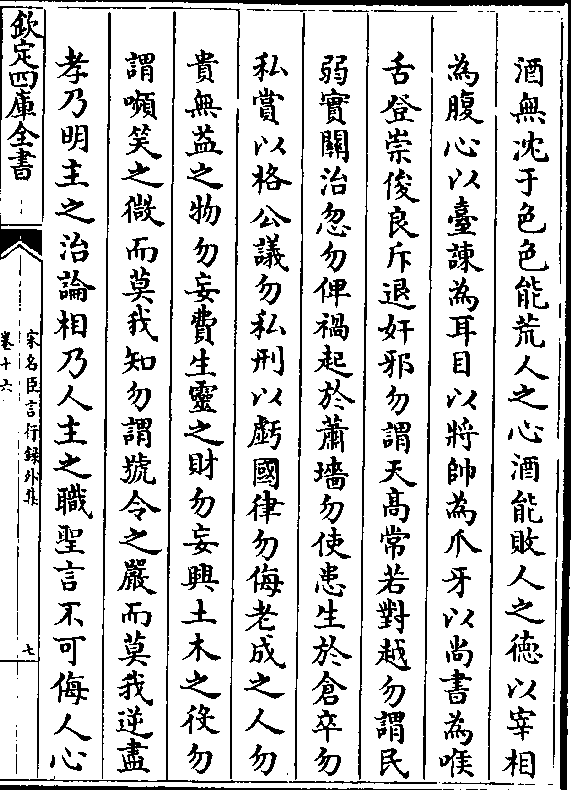 酒無沈于色色能荒人之心酒能敗人之徳以宰相
為腹心以臺諫為耳目以將帥為爪牙以尚書為喉
舌登崇俊良斥退奸邪勿謂天髙常若對越勿謂民
弱實關治忽勿俾禍起於蕭墻勿使患生於倉卒勿
私賞以格公議勿私刑以虧國律勿侮老成之人勿
貴無益之物勿妄費生靈之財勿妄興土木之役勿
謂嚬笑之微而莫我知勿謂號令之嚴而莫我逆盡
孝乃明主之治論相乃人主之職聖言不可侮人心
欽定四庫全書
宋名臣言行録外集
卷十六
七